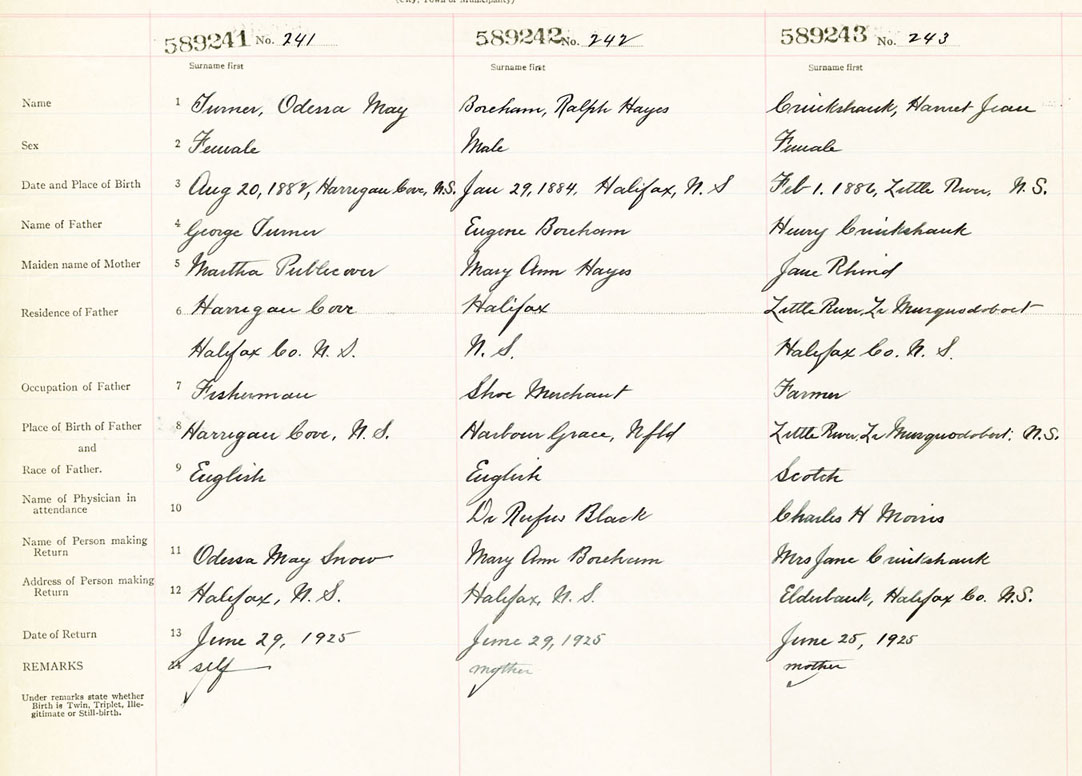 (City, Town or Municipality)
589241 No. 241 589242 No. 242 589243 No. 243
Surname first Surname first Surname first
Name 1 Turner, Odessa May Boreham, Ralph Hayes Cruikshank, Harriet Jean
Sex 2 Female Male Female
Date and Place of Birth 3 Aug 20, 1882, Harrigan Cove, N.S. Jan 29, 1884, Halifax, N. S Feb 1. 1886, Little River, N.S.
Name of Father 4 George Turner Eugene Boreham Henry Cruikshank
Maiden name of Mother 5 Martha Publicover Mary Ann Hayes Jane Rhind
Residence of Father 6 Harrigan Cove Halifax Little River, Musquodoboit
Halifax Co. N. S. N. S. Halifax Co. N. S.
Occupation of Father 7 Fisherman Shoe Merchant Farmer
Place of Birth of Father 8 Harrigan Cove, N. S. Harbour Grace, Nfld Little River, Musquodoboit, N.S.
and
Race of Father. 9 English English Scotch
Name of Physician in
attendance 10 Dr Rufus Black Charles H Morris
Name of Person making
Return 11 Odessa May Snow Mary Ann Boreham Mrs Jane Cruikshank
Address of Person making
Return 12 Halifax, N. S. Halifax, N. S. Elderbank, Halifax Co. N.S.
Date of Return 13 June 29, 1925 June 29, 1925 June 25, 1925
REMARKS self mother mother
Under remarks state whether
Birth is Twin, Triplet, Ille-
gitimate or Still-birth.